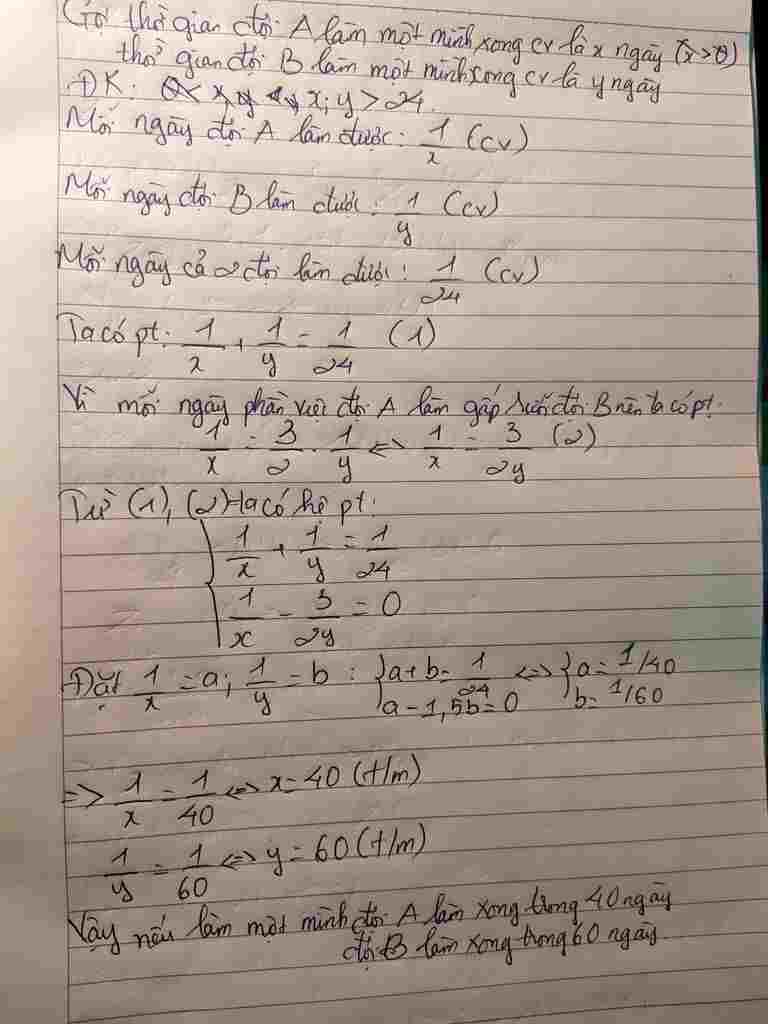 Gọi thời gian đội A làm một mình xong cv là x ngày (x>0)
thời gian đội B làm một mình xong cv là y ngày
ĐK: x; y > 24
Mỗi ngày đội A làm được: 1/x (cv)
Mỗi ngày đội B làm được: 1/y (cv)
Mỗi ngày cả 2 đội làm được: 1/24 (cv)
Ta có pt: 1/x + 1/y = 1/24 (1)
Vì mỗi ngày phần việc đội A làm gấp rưỡi đội B nên ta có pt:
1/x = 3/2 . 1/y <=> 1/x = 3/2y (2)
Từ (1), (2) ta có hệ pt:
{ 1/x + 1/y = 1/24
1/x - 3/2y = 0
Đặt 1/x = a; 1/y = b : { a + b = 1/24 <=> { a = 1/40
a - 1,5b = 0 b = 1/60
=> 1/x = 1/40 <=> x = 40 (t/m)
1/y = 1/60 <=> y = 60 (t/m)
Vậy nếu làm một mình đội A làm xong trong 40 ngày
đội B làm xong trong 60 ngày